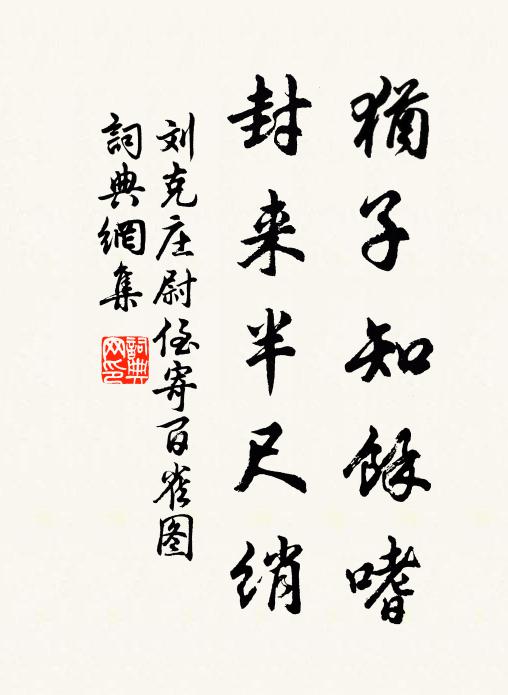 猶子知餘嗜
封来半尺绡
刘克庄尉侄寄百雀图
詞典網集
詞典网印